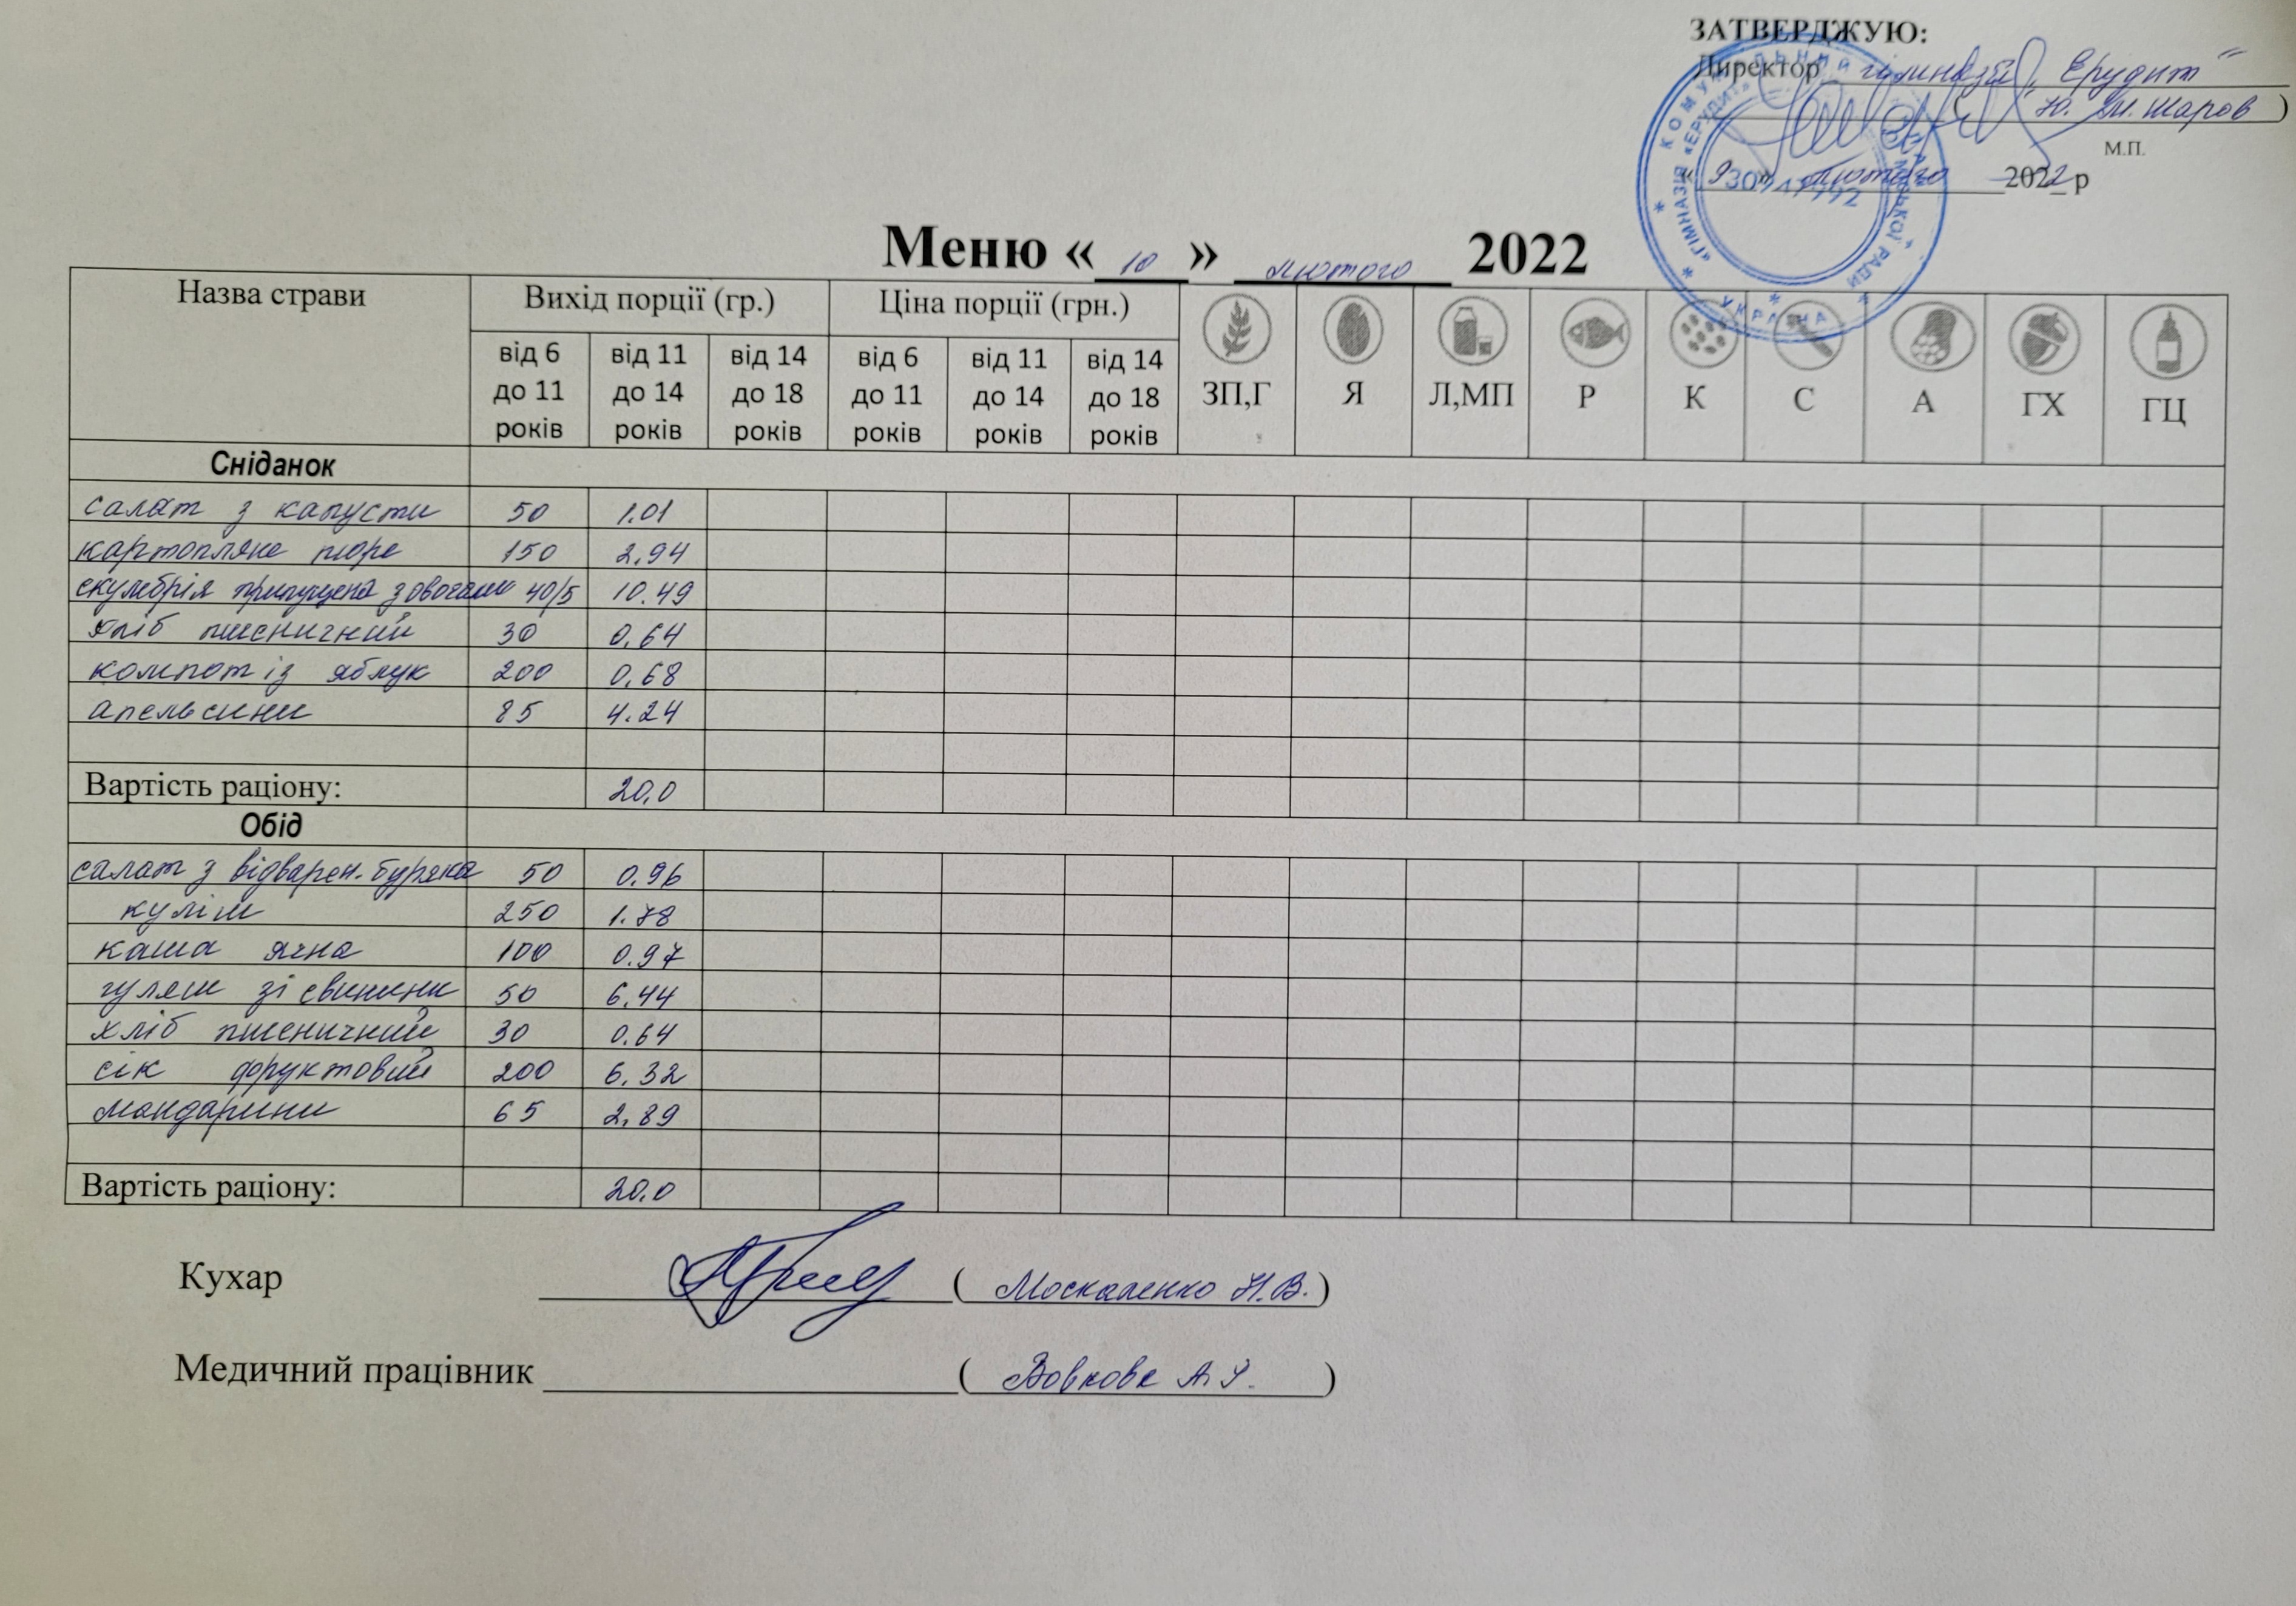 ЗАТВЕРДЖУЮ:
Директор гімназії „Ерудит"
( Ю. М. Шаров )
М.П.
« 9 » лютого 2022 р
КОМУНАЛЬНИЙ
«ГІМНАЗІЯ «ЕРУДИТ»
МІСЬКОЇ РАДИ
УКРАЇНА
Меню « 10 » лютого 2022
Назва страви Вихід порції (гр.) Ціна порції (грн.)
від 6 до 11 років від 11 до 14 років від 14 до 18 років від 6 до 11 років від 11 до 14 років від 14 до 18 років ЗП,Г Я Л,МП Р К С А ГХ ГЦ
Сніданок
салат з капусти 50 1.01
картопляне пюре 150 2,94
скумбрія припущена з овочами 40/5 10.49
хліб пшеничний 30 0,64
компот із яблук 200 0,68
апельсини 85 4.24
Вартість раціону: 20,0
Обід
салат з відварен. буряка 50 0.96
куліш 250 1.78
каша ячна 100 0.97
гуляш зі свинини 50 6,44
хліб пшеничний 30 0.64
сік фруктовий 200 6.32
мандарини 65 2,89
Вартість раціону: 20.0
Кухар ( Москаленко Н.В. )
Медичний працівник ( Вовкова )